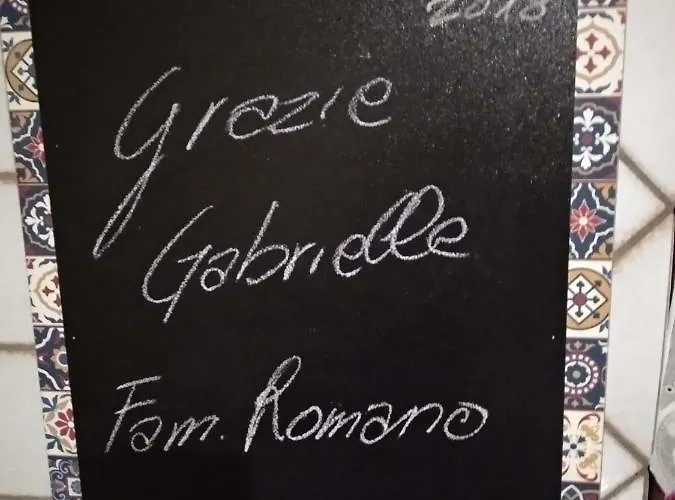 2018
Grazie
Gabrielle
Fam. Romano